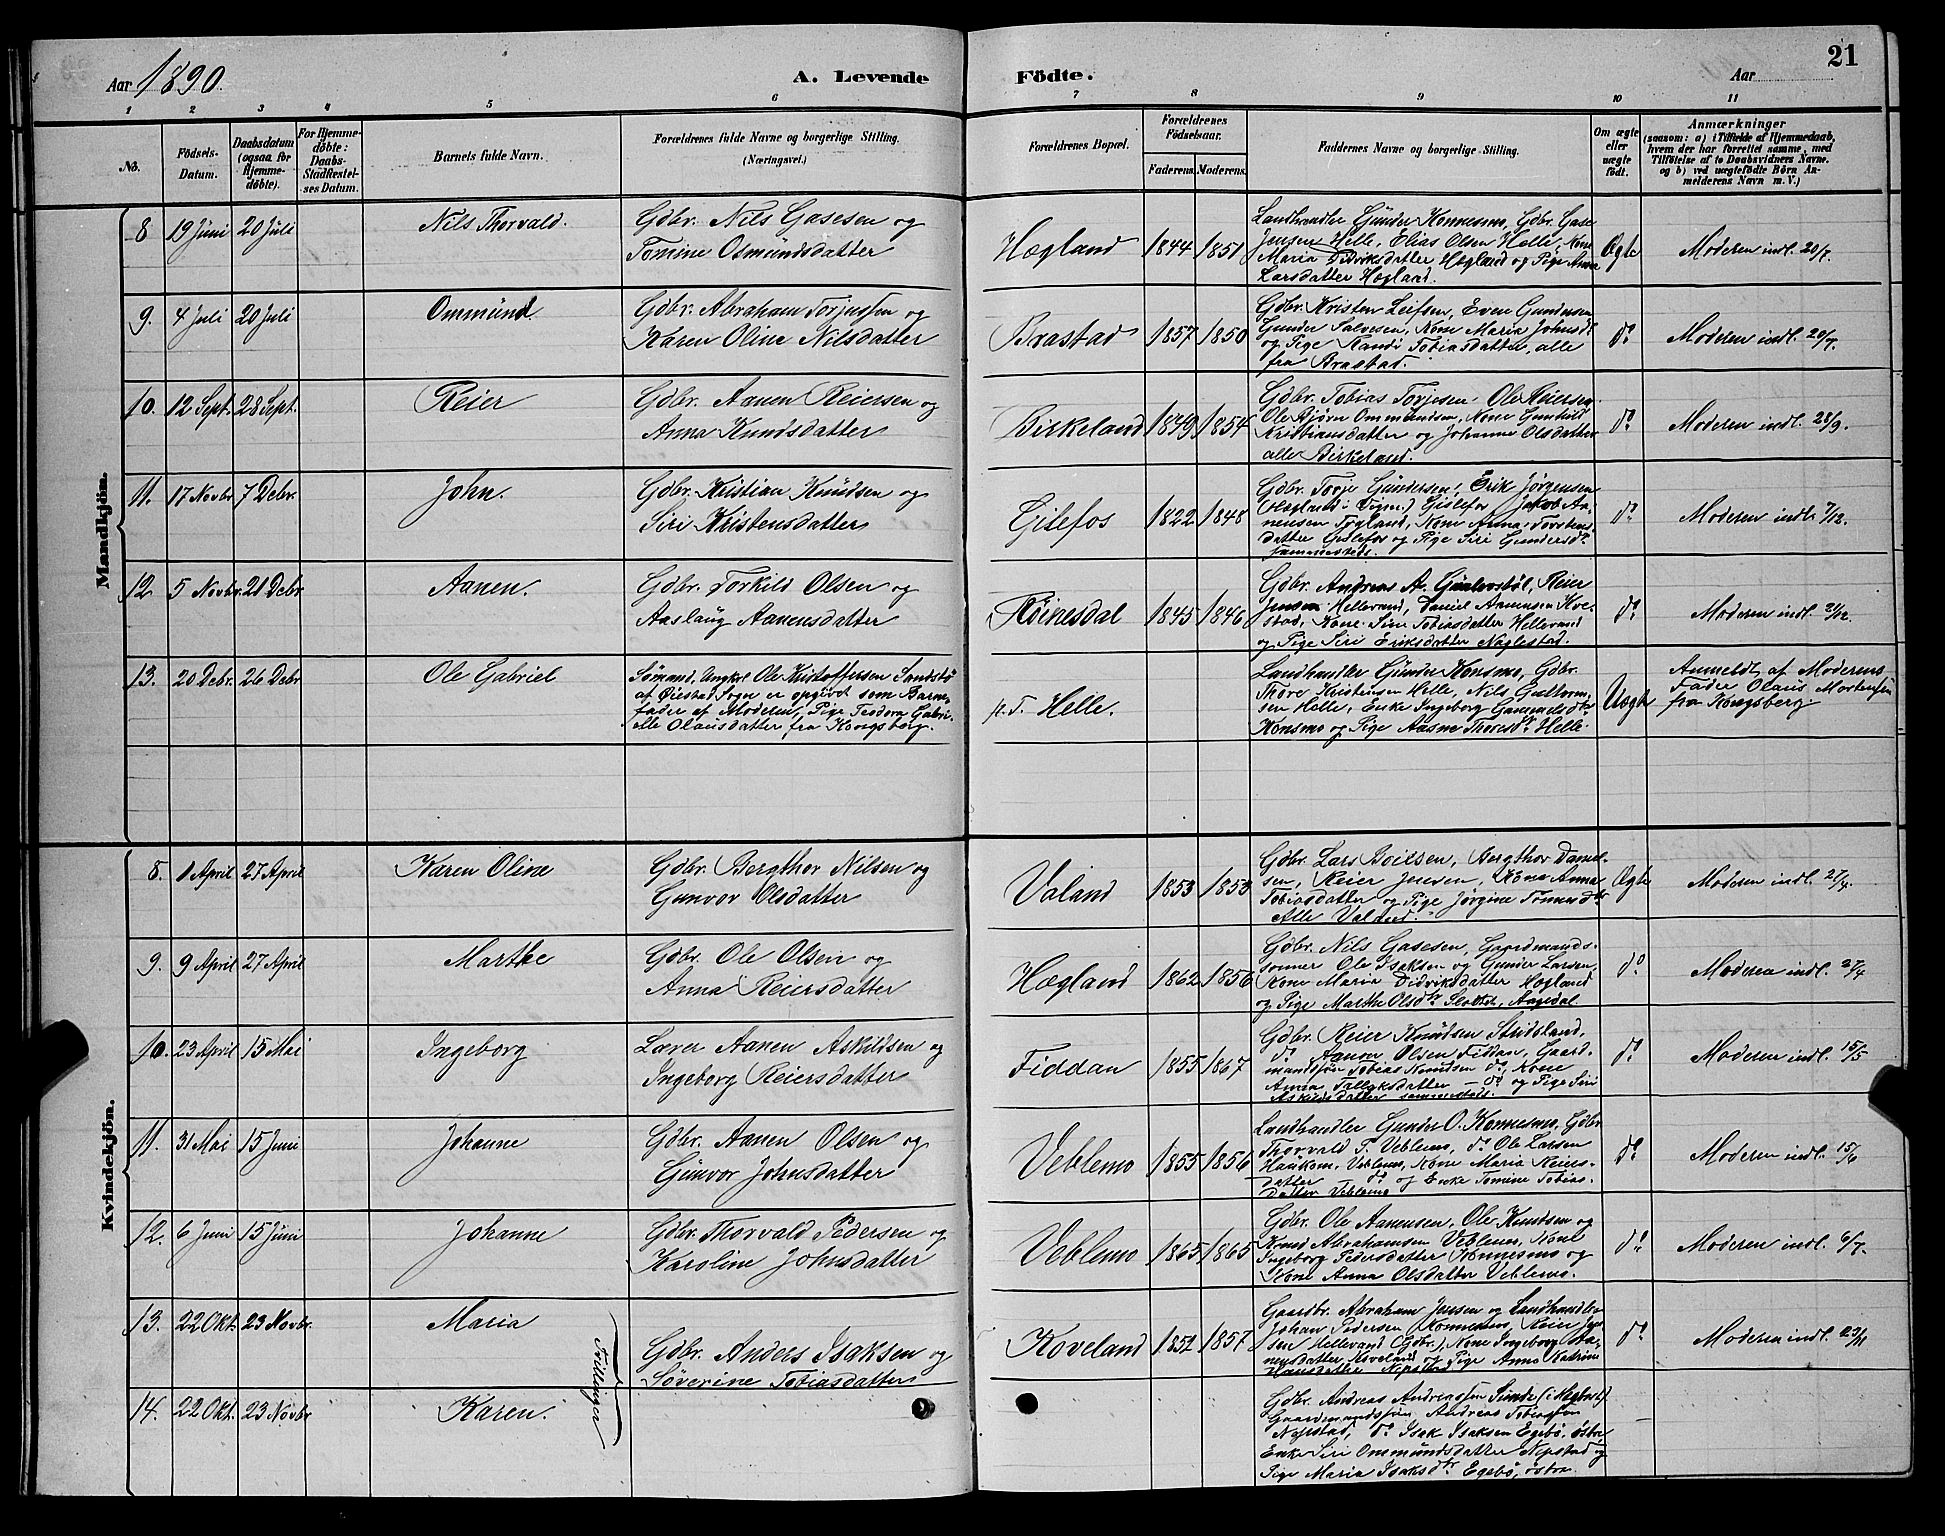 21
Aar 1890. A. Levende Födte. Aar
1 2 3 4 5 6 7 8 9 10 11
No. Födsels-Datum. Daabsdatum (ogsaa for Hjemmedöbte). For Hjemmedöbte: Daabs-Stadfæstelses Datum. Barnets fulde Navn. Forældrenes fulde Navne og borgerlige Stilling. (Næringsvei.) Forældrenes Bopæl. Forældrenes Födselsaar. Faderens. Moderens. Faddernes Navne og borgerlige Stilling. Om ægte eller uægte födt. Anmærkninger (saasom: a) i Tilfælde af Hjemmedaab, hvem der har forrettet samme, med Tilföielse af to Daabsvidners Navne. og b) ved uægtefödte Börn Anmelderens Navn m.V.)
Mandkjön.
8 19 Juni 20 Juli Nils Thorvald. Gdbr. Nils Gasesen og
Tomine Osmundsdatter Hægland 1844 1851
Landhandler Gunder Konnesmo, Gdbr. Gase
Jensen Helle, Elias Olsen Helle, Kone
Maria Didriksdatter Hægland og Pige Anna
Larsdatter Hægland. Ægte Moderen indl. 20/7.
9. 4 Juli 20 Juli Ommund. Gdbr. Abraham Torjussen og
Karen Oline Nilsdatter Brastad 1857 1850
Gdbr. Kristen Leifsen, Even Gundersen
Gunder Salvesen, Kone Maria Johnsd.
og Pige Randi Tobiasdatter, alle
fra Brastad. do Moderen indl. 20/7.
10. 12 Sept. 28 Sept. Reier Gdbr. Aanen Reiersen og
Anna Knudsdatter Birkeland 1849 1854
Gdbr. Tobias Torjesen, Ole Reiersen
Ole Bjørn Ommundsen, Kone Gunhild
Kristiansdatter og Johanne Olsdatter
alle Birkeland. do Moderen indl. 28/9.
11. 17 Novbr. 7 Debr. John. Gdbr. Kristian Knudsen og
Siri Kristensdatter Gislefos 1822 1848
Gdbr. Torje Gundersen, Erik Jørgensen
Gislefos, Jakob Aanensen
Fogland, Kone Anna Torstensdatter
Gislefos og Pige Siri Gundersdr
sammesteds. do Moderen indl. 7/12.
12. 5 Novbr. 21 Debr Aanen. Gdbr. Torkild Olsen og
Aaslaug Aanensdatter Röinesdal 1845 1846
Gdbr. Andreas A. Reier
Jensen Hellevand, Daniel Aanensen
Kone Sine Tobiasdatter Hellevand
og Pige Siri Eriksdatter Naglestad. do Moderen indl. 21/12.
13. 20 Debr. 26 Debr Ole Gabriel Sømand, Ungkal Ole Kristoffersen Sandstø
af Øiestad Sogn er opgivet som Barnefader
af Moderen, Pige Teodora Gabrielle
Olausdatter, fra Kongsberg. p.T. Helle.
Landhandler Gunder Konsmo, Gdbr.
Thore Kristensen Helle, Nils Gullormsen
Helle, Enke Ingeborg Gunnulsdtr
Konsmo og Pige Aasne Thoresdr Helle. Uægte Anmeldt af Moderens
Fader Olaus Mortensen
fra Kongsberg
Kvindekjön.
8. 1 April 27 April Karen Oline Gdbr. Bergthor Nilsen og
Gunvor Olsdatter Valand 1853 1853
Gdbr. Lars Boilsen, Bergthor Danielsen,
Reier Jensen, Kone Anna
Tobiasdatter og Pige Jørgine Tønnesdtr
Alle Valand. Ægte Moderen indl. 27/4.
9. 9 April 27 April Marthe Gdbr. Ole Olsen og
Anna Reiersdatter Hægland 1862 1856
Gdbr. Nils Gasesen, Gaardmandssønner
Ole Isaksen og Gunder Larsen,
Kone Maria Didriksdatter Hægland
og Pige Marthe Olsdtr Slottet, Aagedal do Moderen indl. 27/4
10. 23 April 15 Mai Ingeborg Lærer Aanen Askildsen og
Ingeborg Reiersdatter Fiddan 1855 1867
Gdbr. Reier Knudsen Stridsland,
do Aanen Olsen Fiddan, Gaardmandssøn
Tobias Knudsen do, Kone
Anna Tallaksdatter – do og Pige Siri
Askildsdatter sammesteds. do Moderen indl. 15/5
11. 31 Mai 15 Juni Johanne Gdbr. Aanen Olsen og
Gunvor Johnsdatter Veblemo 1855 1856
Landhandler Gunder O. Konnesmo, Gdbr.
Thorvald P. Veblemo, do Ole Larsen
Haukom, Veblemo, Kone Maria Reiersdatter
do og Enke Tomine Tobiasdatter
Veblemo do Moderen indl. 15/6
12. 6 Juni 15 Juni Johanne Gdbr. Thorvald Pedersen og
Karoline Johnsdatter Veblemo 1865 1865
Gdbr. Ole Aanensen, Ole Knudsen og
Knud Abrahamsen Veblemo, Kone
Ingeborg Pedersdatter Konnesmo og
Kone Anna Olsdatter Veblemo. do Moderen indl. 6/7.
13. 22 Okt. 23 Novbr. Maria Gdbr. Anders Isaksen og
Severine Tobiasdatter Koveland 1852 1857
Gaardbr. Abraham Jensen og Landhandler
Johan Pedersen Konnesmo, Reier Jensen
Hellevand (Gdbr.), Kone Ingeborg Aanensdatter
Koveland og Pige Anna Katrine
Hansdatter Nepstad do Moderen indl. 23/11
Tvillinger
14. 22 Okt. 23 Novbr Karen.
Gdbr. Andreas Andreassen
Gaardmandssøn, Andreas Tobiassen
Nepstad, do Isak Isaksen Egebø, østre,
Enke Siri Ommundsdatter Nepstad og
Pige Maria Isaksdtr Egebø, østre.